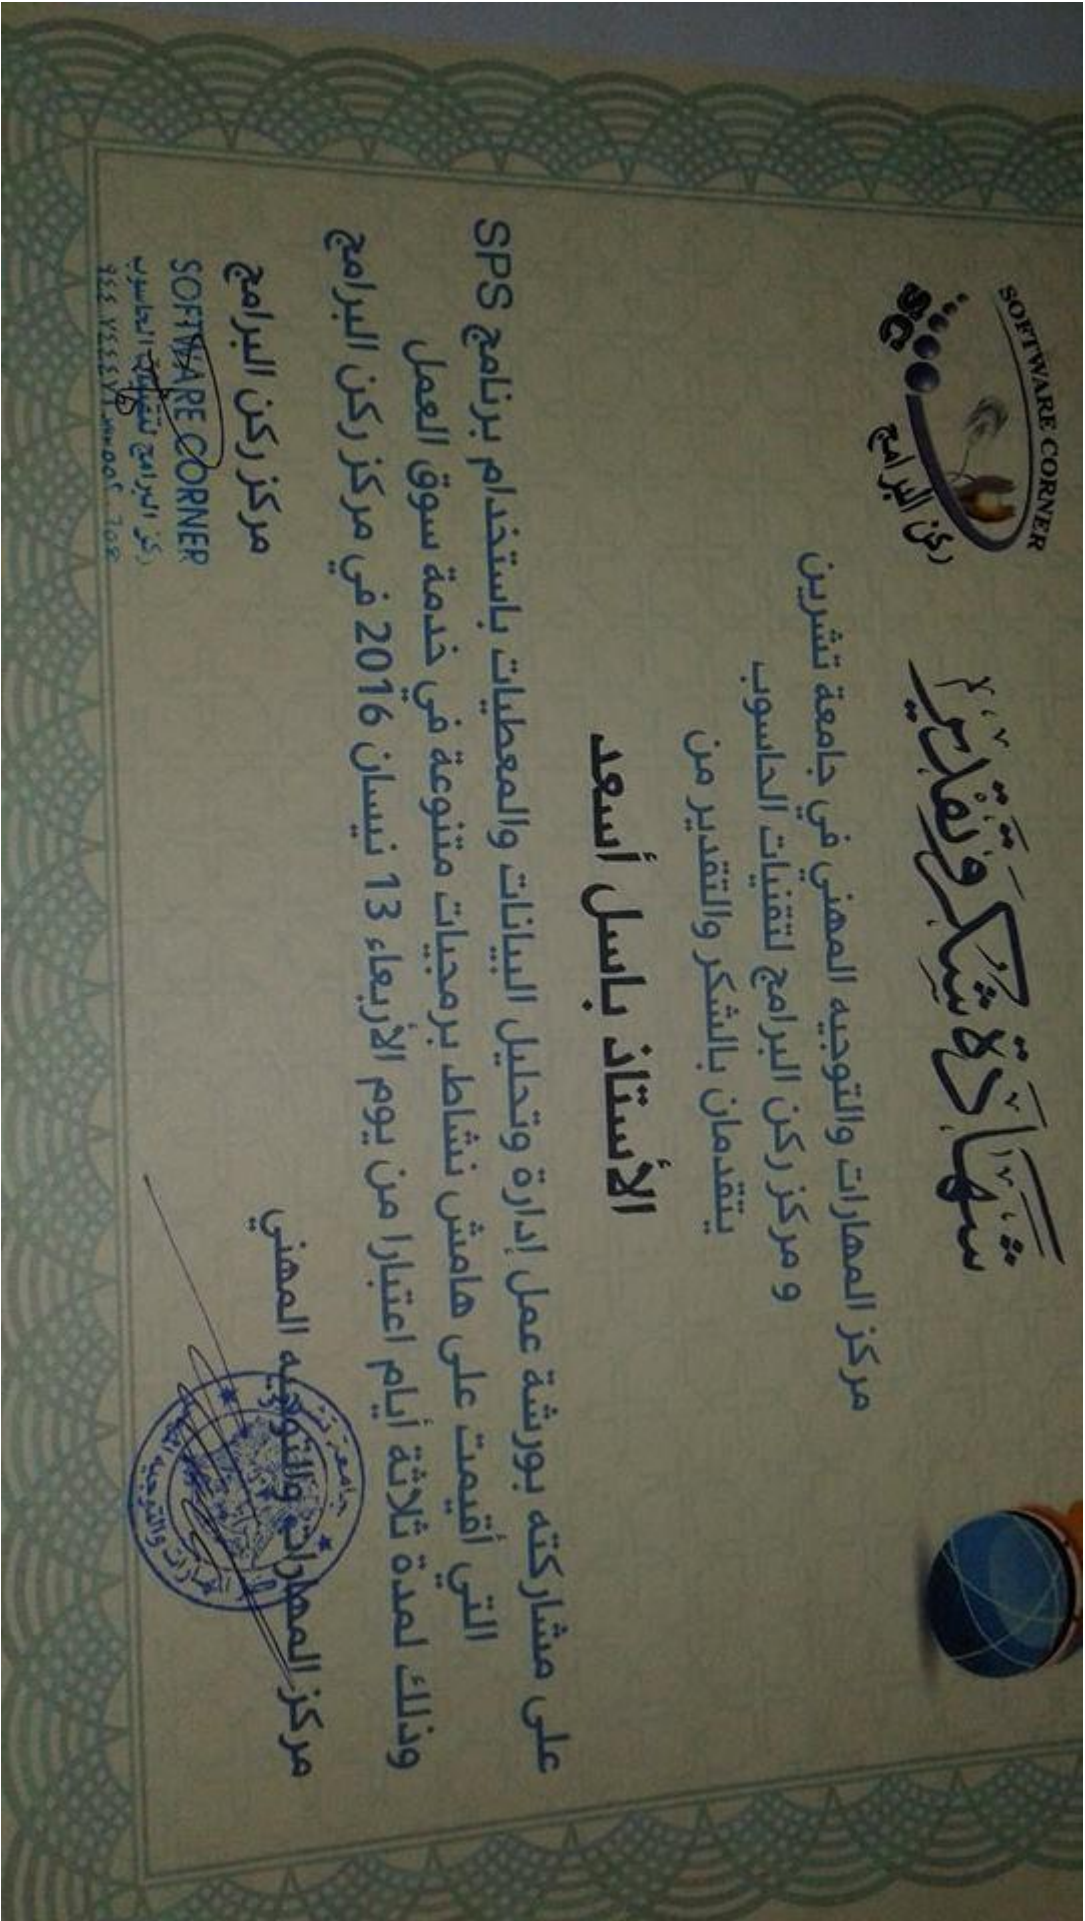 SOFTWARE CORNER
SC
ركن البرامج
شهادة شكر وتقدير
مركز المهارات والتوجيه المهني في جامعة تشرين
و مركز ركن البرامج لتقنيات الحاسوب
يتقدمان بالشكر والتقدير من
الأستاذ باسل أسعد
على مشاركته بورشة عمل إدارة وتحليل البيانات والمعطيات باستخدام برنامج SPS
التي أقيمت على هامش نشاط برمجيات متنوعة في خدمة سوق العمل
وذلك لمدة ثلاثة أيام اعتبارا من يوم الأربعاء 13 نيسان 2016 في مركز ركن البرامج
مركز المهارات والتوجيه المهني
جامعة
المهارات والتوجيه
مركز ركن البرامج
SOFTWARE CORNER
ركن البرامج لتقنيات الحاسوب